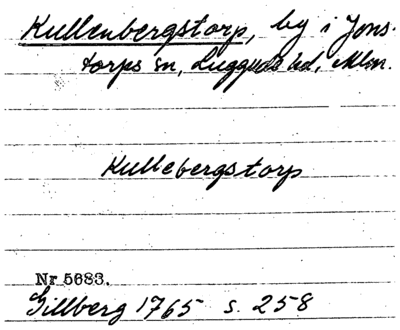 Kullenbergstorp, by i Jons-
torps sn, Luggude hd, Mlm.
Kullebergstorp
Nr 5683.
Gillberg 1765 s. 258